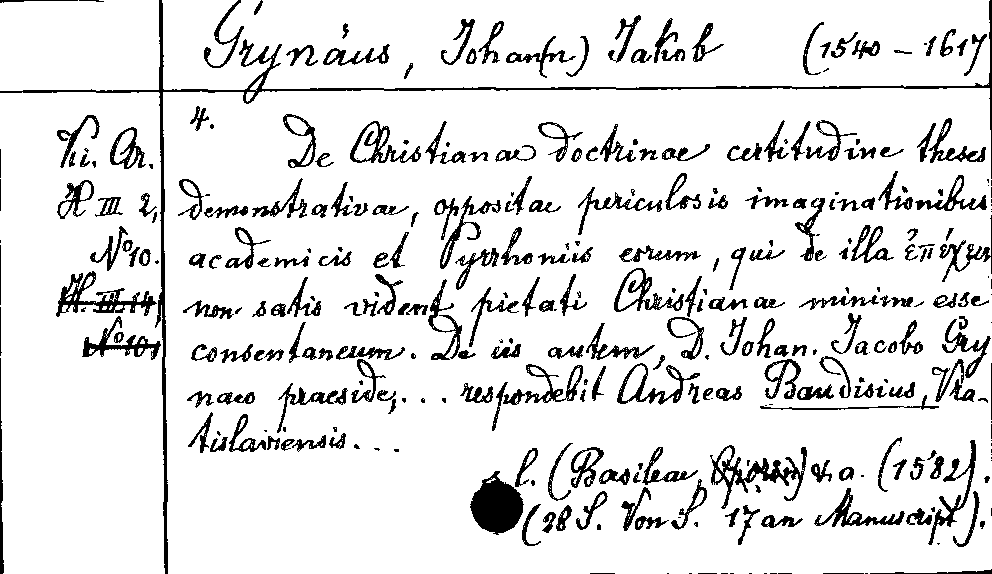 Grynäus, Johan(n) Jakob (1540 – 1617
4.
Ki. Ar. De Christianae doctrinae certitudine theses
H III 2, demonstrativae, oppositae periculosis imaginationibus
No 10. academicis et Pyrrhoniis eorum, qui de illa ἐπέχειν
H. III. 14, non satis vident pietati Christianae minime esse
No 10, consentaneum. De iis autem, D. Johan. Jacobo Gry
naeo praeside, ... respondebit Andreas Baudisius, Vra-
tislaviensis...
s. l. (Basileae, Oporin) s. a. (1582).
(28 S. Von S. 17 an Manuscript).